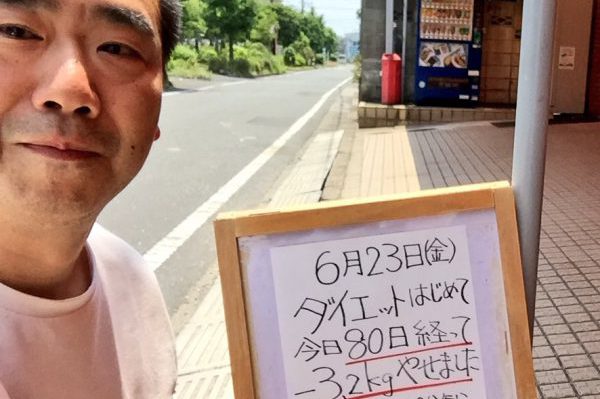 6月23日(金)
ダイエットはじめて
今日80日経って
-3.2kgやせました